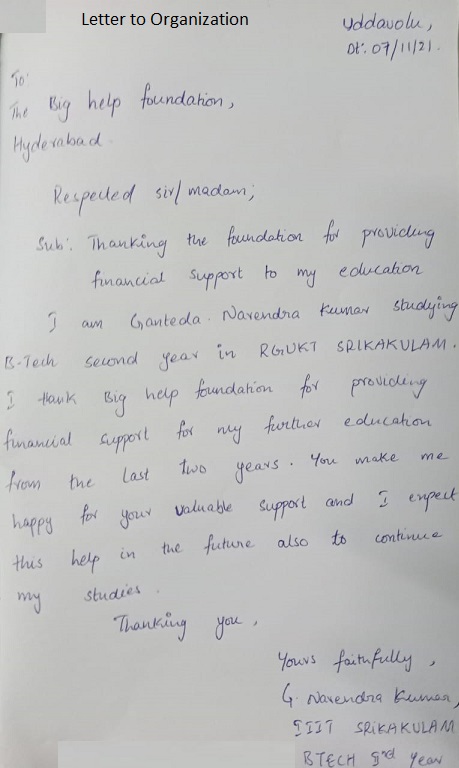 Letter to Organization
Uddavolu,
Dt: 07/11/21.
To:
The Big help foundation,
Hyderabad.
Respected sir/madam;
Sub: Thanking the foundation for providing
financial support to my education
I am Ganteda. Narendra Kumar studying
B-Tech second year in RGUKT SRIKAKULAM.
I thank Big help foundation for providing
financial support for my further education
from the last two years. You make me
happy for your valuable support and I expect
this help in the future also to continue
my studies.
Thanking you,
Yours faithfully,
G. Narendra Kumar,
IIIT SRIKAKULAM
BTECH Year